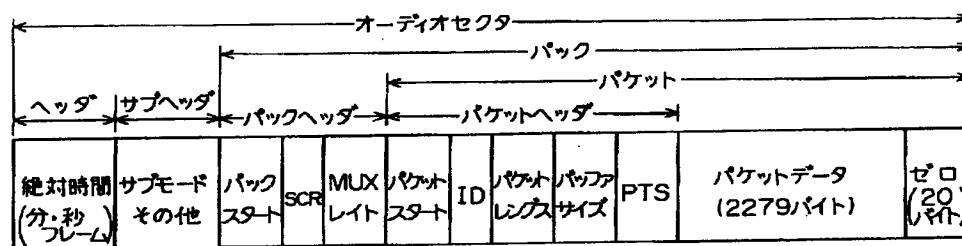 オーディオセクタ
パック
パケット
ヘッダ
サブヘッダ
パックヘッダ
パケットヘッダ
絶対時間
(分・秒
フレーム)
サブモード
その他
パック
スタート
SCR
MUX
レイト
パケット
スタート
ID
パケット
レングス
バッファ
サイズ
PTS
パケットデータ
(2279バイト)
ゼロ
(20
バイト)